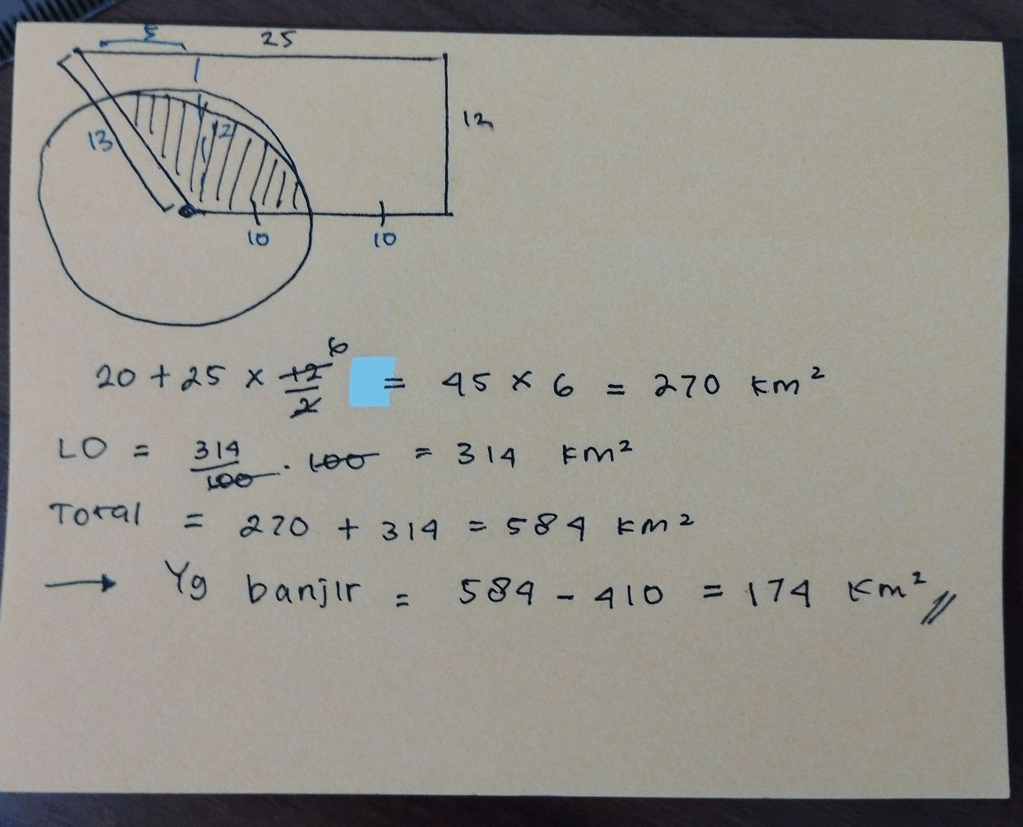 5 25
12
13 12
10 10
20 + 25 × 12/2 6 = 45 × 6 = 270 km²
LO = 314/100 . 100 = 314 km²
Total = 270 + 314 = 584 km²
→ Yg banjir = 584 - 410 = 174 km² //